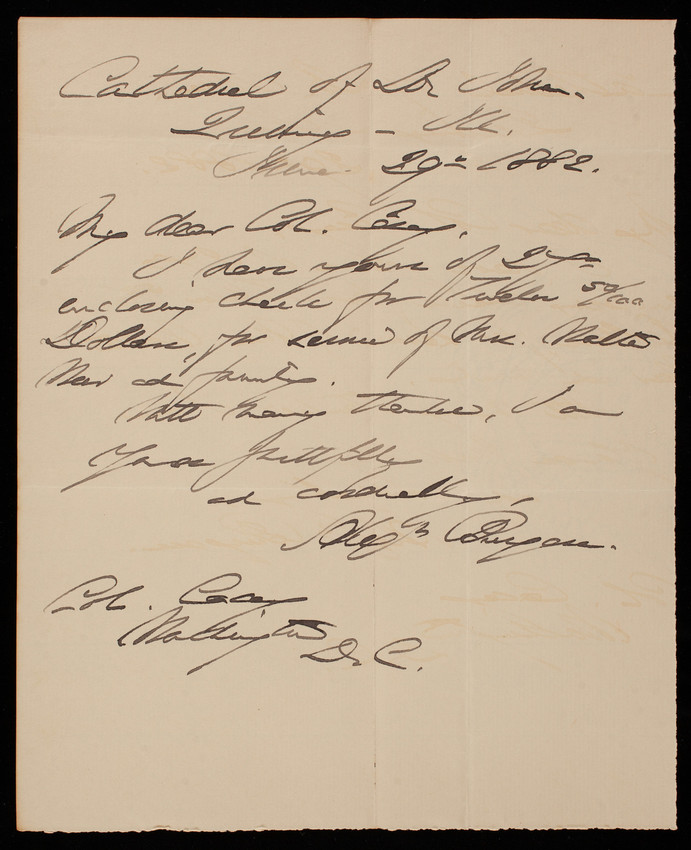 Cathedral of St. John.
Quincy - Ill.
June. 29th 1882.
My dear Col. Casey,
I have yours of 27th
enclosing check for Twelve 50/100
Dollars, for service of Mr. Walter
and family.
With many thanks, I am
Yours faithfully
and cordially,
Alexr Burgess.
Col. Casey
Washington
D. C.